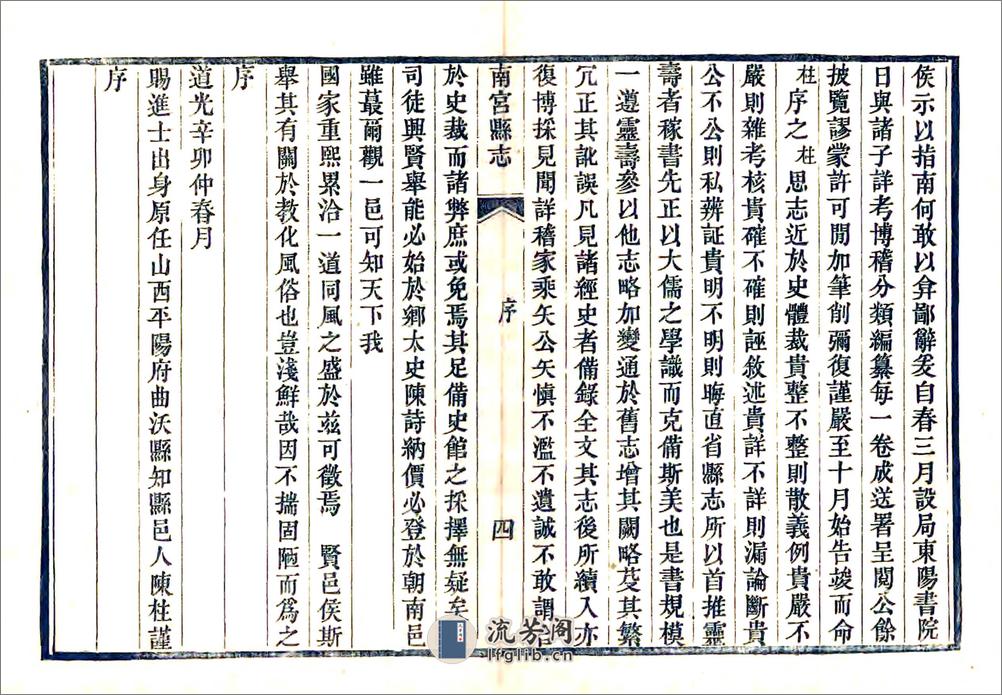 侯示以指南何敢以弇鄙辭爰自春三月設局東陽書院
日與諸子詳考博稽分類編纂每一卷成送署呈閱公餘
披覽謬蒙許可閒加筆削彌復謹嚴至十月始告竣而命
柱序之柱思志近於史體裁貴整不整則散義例貴嚴不
嚴則雜考核貴確不確則誣敘述貴詳不詳則漏論斷貴
公不公則私辨証貴明不明則晦直省縣志所以首推靈
壽者稼書先正以大儒之學識而克備斯美也是書規模
一遵靈壽參以他志略加變通於舊志增其闕略芟其繁
冗正其訛誤凡見諸經史者備錄全文其志後所續入亦
復博採見聞詳稽家乘矢公矢慎不濫不遺誠不敢謂
南宮縣志
序
四
於史裁而諸弊庶或免焉其足備史館之採擇無疑矣
司徒興賢舉能必始於鄉太史陳詩納價必登於朝南邑
雖蕞爾觀一邑可知天下我
國家重熙累洽一道同風之盛於茲可徵焉 賢邑侯斯
舉其有關於教化風俗也豈淺鮮哉因不揣固陋而為之
序
道光辛卯仲春月
賜進士出身原任山西平陽府曲沃縣知縣邑人陳柱謹
序
流芳閣
lfglib.cn